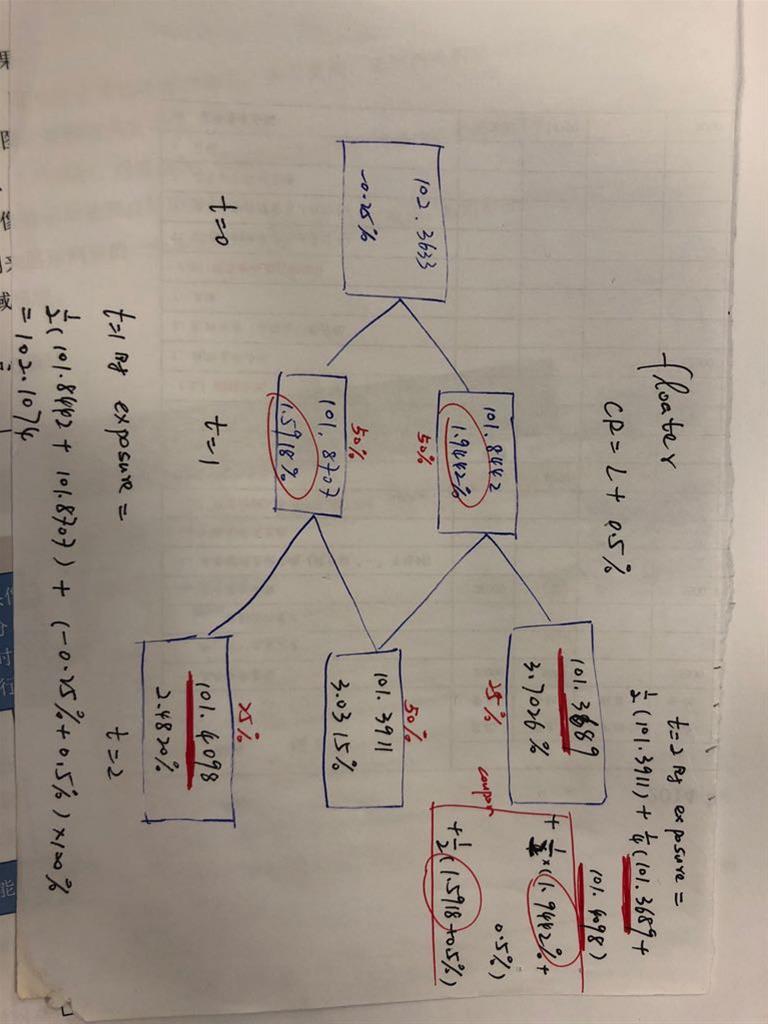 floater
CR = L + 0.5%
102.3633
-0.25%
t=0
101.8442
1.9442%
50%
50%
101.8707
1.5918%
t=1
101.3689
3.7026%
25%
50%
101.3911
3.0315%
25%
101.4098
2.4820%
t=2
t=2 的 exposure =
½(101.3911) + ¼(101.3689 +
101.4098)
coupon
+ ½×(1.9442% +
0.5%)
+ ½(1.5918+0.5%)
t=1 的 exposure =
½(101.8442 + 101.8707) + (-0.25% + 0.5%) × 100%
= 102.1074